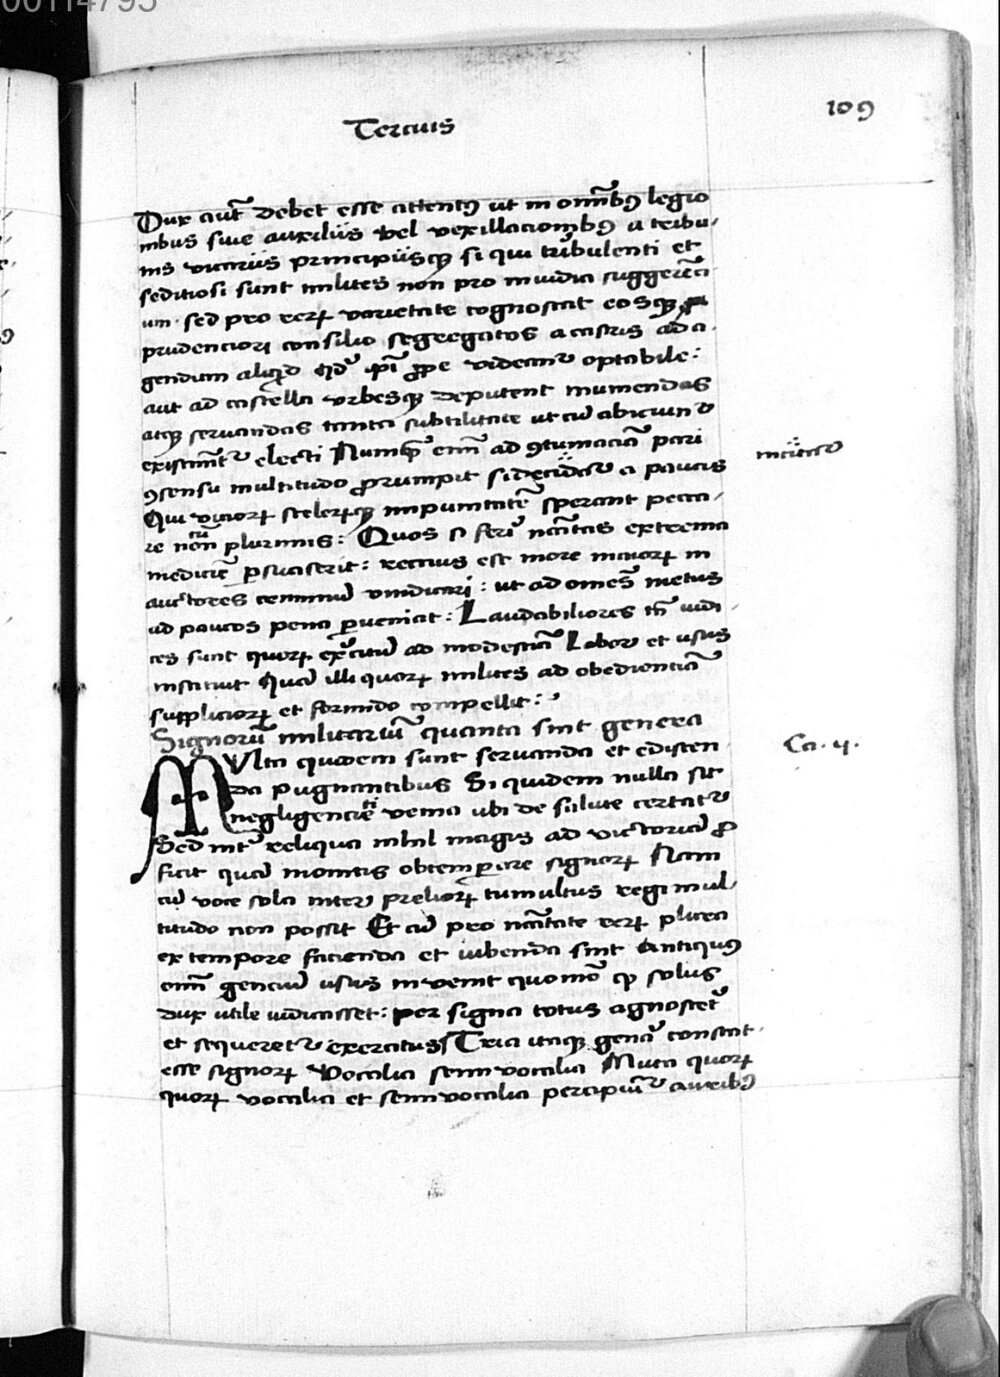 00114795
Tercius
109
Dux aut̄ debet esse attentꝰ ut in om̄ibꝰ legio
nibus siue auxiliis vel vexillacionibꝰ a tribu
nis vicariis principiisqꝫ si qui turbulenti et
seditiosi sunt milites non pro inuidia suggerēti
um · sed pro rerꝝ varietate cognoscat eosqꝫ
prudenciori consilio segregatos a castris ad a
gendum aliqͥd qd̓ ip̄i ꝓpe videant᷑ optabile :
aut ad castella vrbesqꝫ deputent muniendas
atqꝫ seruandas tanta subtilitate ut cū abiciunt᷑
existimēt᷑ electi Numqͣ eni̅ ad ꝯtumaciā pari
ꝯsensu multitudo prorumpit si a paucis
incitat᷑
Qui vicioꝝ scelerꝝqꝫ impunitatē sperant pecca
re cū plurimis : Quos si ferri nccītas extrema
medicīe ꝑsuaserit : rectius est more maioꝝ in
auctores criminū vindicari : ut ad omēs metus
ad paucos pena ꝑueniat : Laudabiliores tn̄ iudi
ces sunt quorꝝ exͨitū ad modestiā Labor et usus
instituit Quā illi quorꝝ milites ad obedienciā
supplicioꝝ et formido compellit :
Signorū militariū quanta sint genera
Ca · 4 ·
Multa quidem sunt seruanda et ediscen
da pugnantibus Si quidem nulla sit
negligencie venia ubi de salute certat᷑
Sed int᷑ reliqua nihil magis ad victoriā ꝓ
ficit quā monitis obtemꝑare signorꝝ Nam
cū voce sola inter preliorꝝ tumultus regi mul
titudo non possit Et cū pro nccītate rerꝝ plura
ex tempore facienda et iubenda sint Antiquꝰ
om̄i genciū usus inuenit quomō qͩ solus
dux utile iudicasset : per signa totus agnoscēt
et sequeret᷑ exercitus Tria itaqꝫ genā constat
esse signorꝝ Vocalia semiuocalia Muta quorꝝ
quorꝝ vocalia et semiuocalia percipiūt᷑ auribꝰ